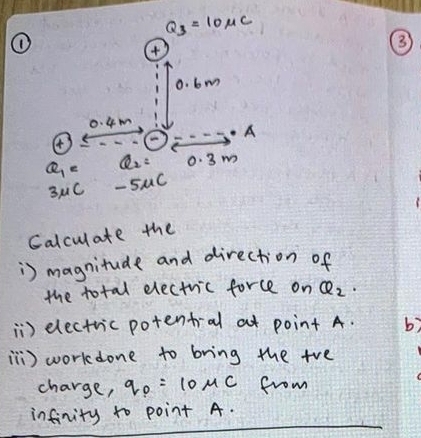 ①
Q3 = 10 μC
③
+
0.6m
0.4m
A
+
−
Q1 =
Q2 =
0.3 m
3μC
-5μC
Calculate the
i) magnitude and direction of
the total electric force on Q2.
ii) electric potential at point A.
b)
iii) workdone to bring the +ve
charge, q0 = 10 μC from
infinity to point A.